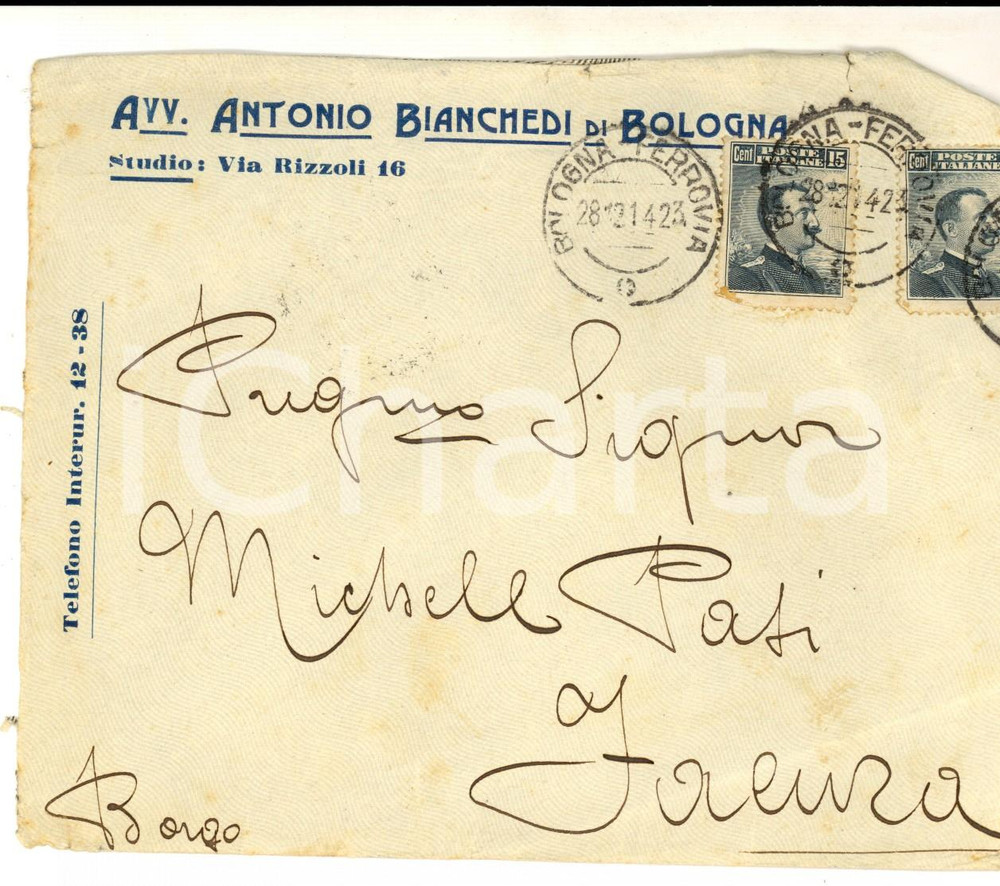 AVV. ANTONIO BIANCHEDI DI BOLOGNA
Studio: Via Rizzoli 16
Telefono Interur. 12-38
BOLOGNA-FERROVIA
28 12 14 23
Cent POSTE ITALIANE 15
BOLOGNA-FERROVIA
28 12 14 23
Cent POSTE ITALIANE
Pregmo Signor
Michele Pasi
Faenza
Borgo
iCharta